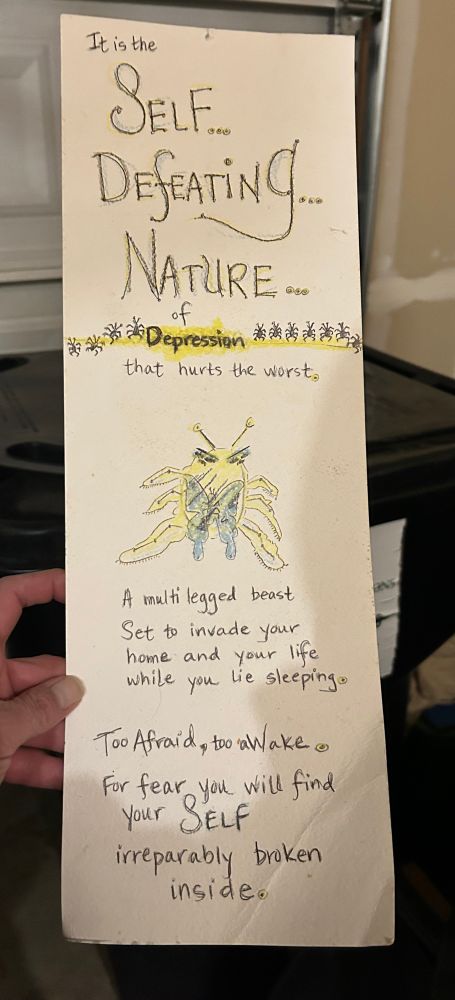 It is the
SELF...
DEfEATiNG...
NATURE...
of
Depression
that hurts the worst.
A multi legged beast
Set to invade your
home and your life
while you lie sleeping.
Too Afraid, too aWake.
For fear you will find
your SELF
irreparably broken
inside.